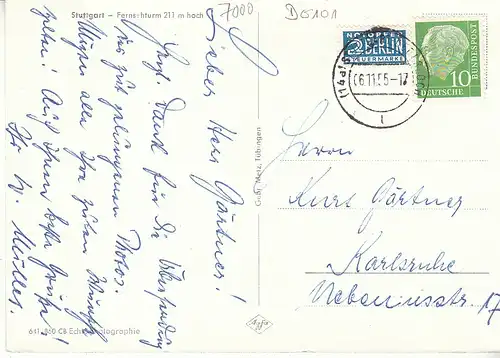 Stuttgart – Fernsehturm 211 m hoch
7000
D5101
Lieber Herr Gärtner!
Hzgl. Dank für die Übersendung
der gut gelungenen Photos.
Mögen alle Ihre guten Wünsche
gelten! Auch Ihnen beste Grüße!
Ihr W. Müller.
NOTOPFER
2 BERLIN
STEUERMARKE
06.11.56-17
DEUTSCHE BUNDESPOST
10
Herrn
Kurt Gärtner
Karlsruhe
Nebeniusstr. 17
Gebr. Metz, Tübingen
Agfa